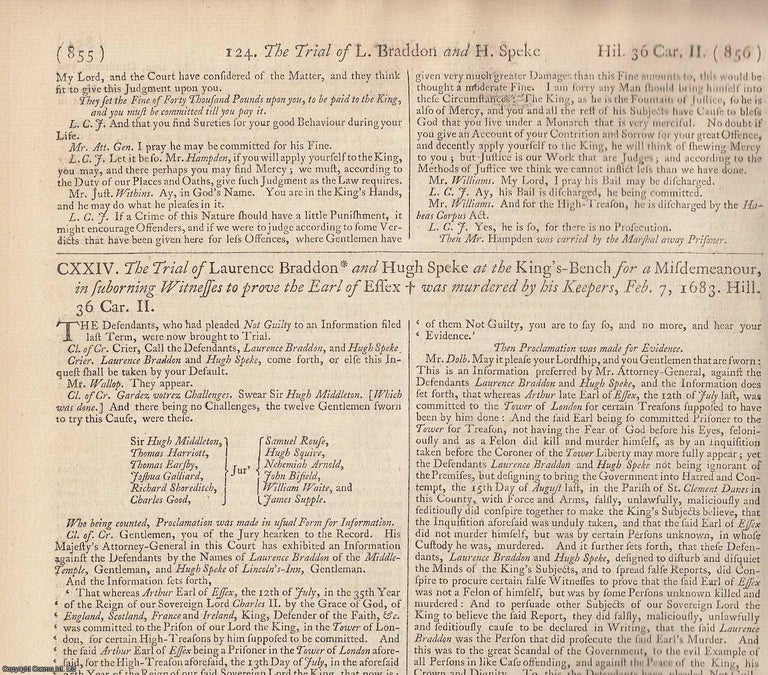 (855) 124. The Trial of L. Braddon and H. Speke Hil. 36 Car. II. (856)
My Lord, and the Court have conſidered of the Matter, and they think
fit to give this Judgment upon you.
They ſet the Fine of Forty Thouſand Pounds upon you, to be paid to the King,
and you muſt be committed till you pay it.
L. C. J. And that you find Sureties for your good Behaviour during your
Life.
Mr. Att. Gen. I pray he may be committed for his Fine.
L. C. J. Let it be ſo. Mr. Hampden, if you will apply yourſelf to the King,
you may, and there perhaps you may find Mercy; we muſt, according to
the Duty of our Places and Oaths, give ſuch Judgment as the Law requires.
Mr. Juſt. Withins. Ay, in God's Name. You are in the King's Hands,
and he may do what he pleaſes in it.
L. C. J. If a Crime of this Nature ſhould have a little Puniſhment, it
might encourage Offenders, and if we were to judge according to ſome Ver-
dicts that have been given here for leſs Offences, where Gentlemen have
given very much greater Damages than this Fine amounts to, this would be
thought a moderate Fine. I am ſorry any Man ſhould bring himſelf into
theſe Circumſtances: The King, as he is the Fountain of Juſtice, ſo he is
alſo of Mercy, and you and all the reſt of his Subjects have Cauſe to bleſs
God that you live under a Monarch that is very merciful. No doubt if
you give an Account of your Contrition and Sorrow for your great Offence,
and decently apply yourſelf to the King, he will think of ſhewing Mercy
to you; but Juſtice is our Work that are Judges; and according to the
Methods of Juſtice we think we cannot inflict leſs than we have done.
Mr. Williams. My Lord, I pray his Bail may be diſcharged.
L. C. J. Ay, his Bail is diſcharged, he being committed.
Mr. Williams. And for the High-Treaſon, he is diſcharged by the Ha-
beas Corpus Act.
L. C. J. Yes, he is ſo, for there is no Proſecution.
Then Mr. Hampden was carried by the Marſhal away Priſoner.
CXXIV. The Trial of Laurence Braddon* and Hugh Speke at the King's-Bench for a Miſdemeanour,
in ſuborning Witneſſes to prove the Earl of Eſſex † was murdered by his Keepers, Feb. 7, 1683. Hill.
36 Car. II.
THE Defendants, who had pleaded Not Guilty to an Information filed
laſt Term, were now brought to Trial.
Cl. of Cr. Crier, Call the Defendants, Laurence Braddon, and Hugh Speke.
Crier. Laurence Braddon and Hugh Speke, come forth, or elſe this In-
queſt ſhall be taken by your Default.
Mr. Wallop. They appear.
Cl. of Cr. Gardez votrez Challenges. Swear Sir Hugh Middleton. [Which
was done.] And there being no Challenges, the twelve Gentlemen ſworn
to try this Cauſe, were theſe.
Sir Hugh Middleton, Samuel Rouſe,
Thomas Harriott, Hugh Squire,
Thomas Earſby, Nehemiah Arnold,
Joſhua Galliard, Jur' John Bifield,
Richard Shoreditch, William Waite, and
Charles Good, James Supple.
Who being counted, Proclamation was made in uſual Form for Information.
Cl. of Cr. Gentlemen, you of the Jury hearken to the Record. His
Majeſty's Attorney-General in this Court has exhibited an Information
againſt the Defendants by the Names of Laurence Braddon of the Middle-
Temple, Gentleman, and Hugh Speke of Lincoln's-Inn, Gentleman.
And the Information ſets forth,
‘ That whereas Arthur Earl of Eſſex, the 12th of July, in the 35th Year
‘ of the Reign of our Sovereign Lord Charles II. by the Grace of God, of
‘ England, Scotland, France and Ireland, King, Defender of the Faith, &c.
‘ was committed to the Priſon of our Lord the King, in the Tower of Lon-
‘ don, for certain High-Treaſons by him ſuppoſed to be committed. And
‘ the ſaid Arthur Earl of Eſſex being a Priſoner in the Tower of London afore-
‘ ſaid, for the High-Treaſon aforeſaid, the 13th Day of July, in the aforeſaid
Year of the Reign of our Sovereign Lord the King, that now is;
‘ of them Not Guilty, you are to ſay ſo, and no more, and hear your
‘ Evidence.’
Then Proclamation was made for Evidence.
Mr. Dolb. May it pleaſe your Lordſhip, and you Gentlemen that are ſworn:
This is an Information preferred by Mr. Attorney-General, againſt the
Defendants Laurence Braddon and Hugh Speke, and the Information does
ſet forth, that whereas Arthur late Earl of Eſſex, the 12th of July laſt, was
committed to the Tower of London for certain Treaſons ſuppoſed to have
been by him done: And the ſaid Earl being ſo committed Priſoner to the
Tower for Treaſon, not having the Fear of God before his Eyes, feloni-
ouſly and as a Felon did kill and murder himſelf, as by an inquiſition
taken before the Coroner of the Tower Liberty may more fully appear; yet
the Defendants Laurence Braddon and Hugh Speke not being ignorant of
the Premiſſes, but deſigning to bring the Government into Hatred and Con-
tempt, the 15th Day of Auguſt laſt, in the Pariſh of St. Clement Danes in
this County, with Force and Arms, falſly, unlawfully, maliciouſly and
ſeditiouſly did conſpire together to make the King's Subjects believe, that
the Inquiſition aforeſaid was unduly taken, and that the ſaid Earl of Eſſex
did not murder himſelf, but was by certain Perſons unknown, in whoſe
Cuſtody he was, murdered. And it further ſets forth, that theſe Defen-
dants, Laurence Braddon and Hugh Speke, deſigned to diſturb and diſquiet
the Minds of the King's Subjects, and to ſpread falſe Reports, did Con-
ſpire to procure certain falſe Witneſſes to prove that the ſaid Earl of Eſſex
was not a Felon of himſelf, but was by ſome Perſons unknown killed and
murdered: And to perſuade other Subjects of our Sovereign Lord the
King to believe the ſaid Report, they did falſly, maliciouſly, unlawfully
and ſeditiouſly cauſe to be declared in Writing, that the ſaid Laurence
Braddon was the Perſon that did proſecute the ſaid Earl's Murder. And
this was to the great Scandal of the Government, to the evil Example of
all Perſons in like Caſe offending, and againſt the Peace of the King, his
Crown and Dignity. To this, the Defendants have pleaded Not Guil-